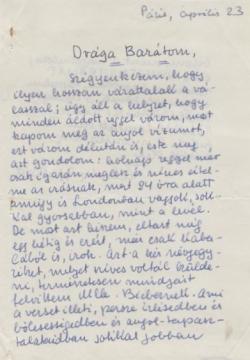 Páris, április 23
Drága Barátom,
Szégyenkezem, hogy
ilyen hosszan várattalak a vá-
lasszal; úgy áll a helyzet, hogy
minden áldott reggel várom, hogy
kapom meg az angol vízumot,
ezt várom délután is, este meg
azt gondolom: holnap reggel már
csak igazán meglesz és nincs értel-
me az írásnak, mert 24 óra alatt
amúgy is Londonban vagyok, sok-
kal gyorsabban, mint a levél.
De most azt hiszem, eltart még
egy hétig és ezért, már csak kaba-
lából is, írok. Azt a kis névjegy-
, melyet szíves voltál külde-
ni, természetesen mindjárt
felvittem Mlle. . Ami
a verset illeti, persze ízlésedben és
bölcsességedben és angol-tapasz-
talataidban sokkal jobban